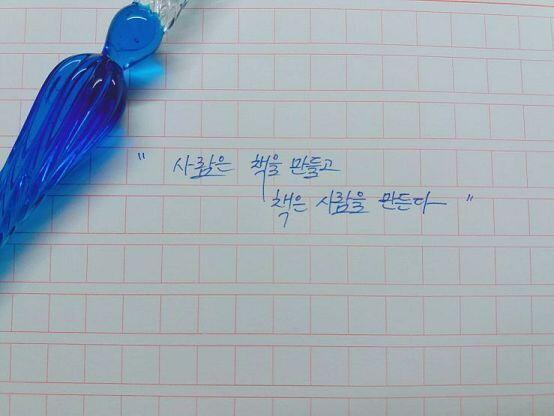 " 사람은 책을 만들고
책은 사람을 만든다 "